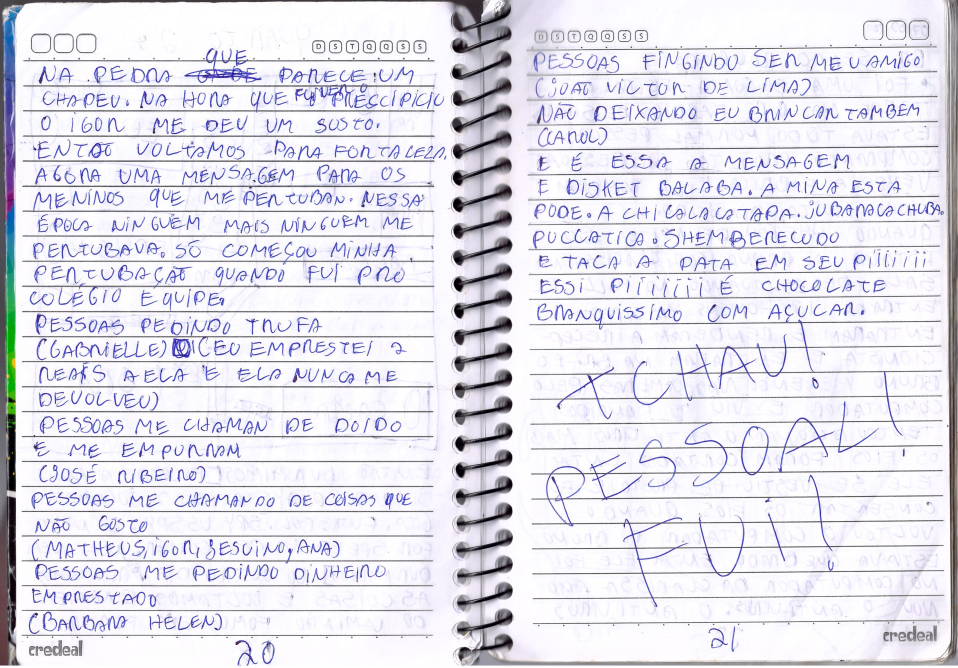 D S T Q Q S S
QUE
NA PEDRA ONDE PARECE UM
CHAPEU. NA HORA QUE FUI VER O PRESCIPICIO
O IGOR ME DEU UM SUSTO.
ENTÃO VOLTAMOS PARA FORTALEZA.
AGORA UMA MENSAGEM PARA OS
MENINOS QUE ME PERTUBAN. NESSA
ÉPOCA NINGUÉM MAIS NINGUEM ME
PERTUBAVA. SÓ COMEÇOU MINHA
PERTUBAÇÃO QUANDO FUI PRO
COLÉGIO EQUIPE.
PESSOAS PEDINDO TRUFA
(GABRIELLE) (CEU EMPRESTEI 2
REAIS A ELA E ELA NUNCA ME
DEVOLVEU)
PESSOAS ME CHAMAN DE DOIDO
E ME EMPURRAM
(JOSÉ RIBEIRO)
PESSOAS ME CHAMANDO DE COISAS QUE
NÃO GOSTO
(MATHEUS, IGOR, JESUINO, ANA)
PESSOAS ME PEDINDO DINHEIRO
EMPRESTADO
(BARBARA HELEN)
credeal
20
D S T Q Q S S
PESSOAS FINGINDO SER MEU AMIGO
(JOÃO VICTOR DE LIMA)
NÃO DEIXANDO EU BRINCAR TAMBEM
(CAROL)
E É ESSA A MENSAGEM
E DISKET BALABA. A MINA ESTA
PODE. A CHICALACATAPA. JUBARACACHUBA.
PUCCATICA. SHEMBERECUDO
E TACA A PATA EM SEU PIIIIIII
ESSI PIIIIIII É CHOCOLATE
BRANQUISSIMO COM AÇUCAR.
TCHAU!
PESSOAL!
FUI!
21
credeal